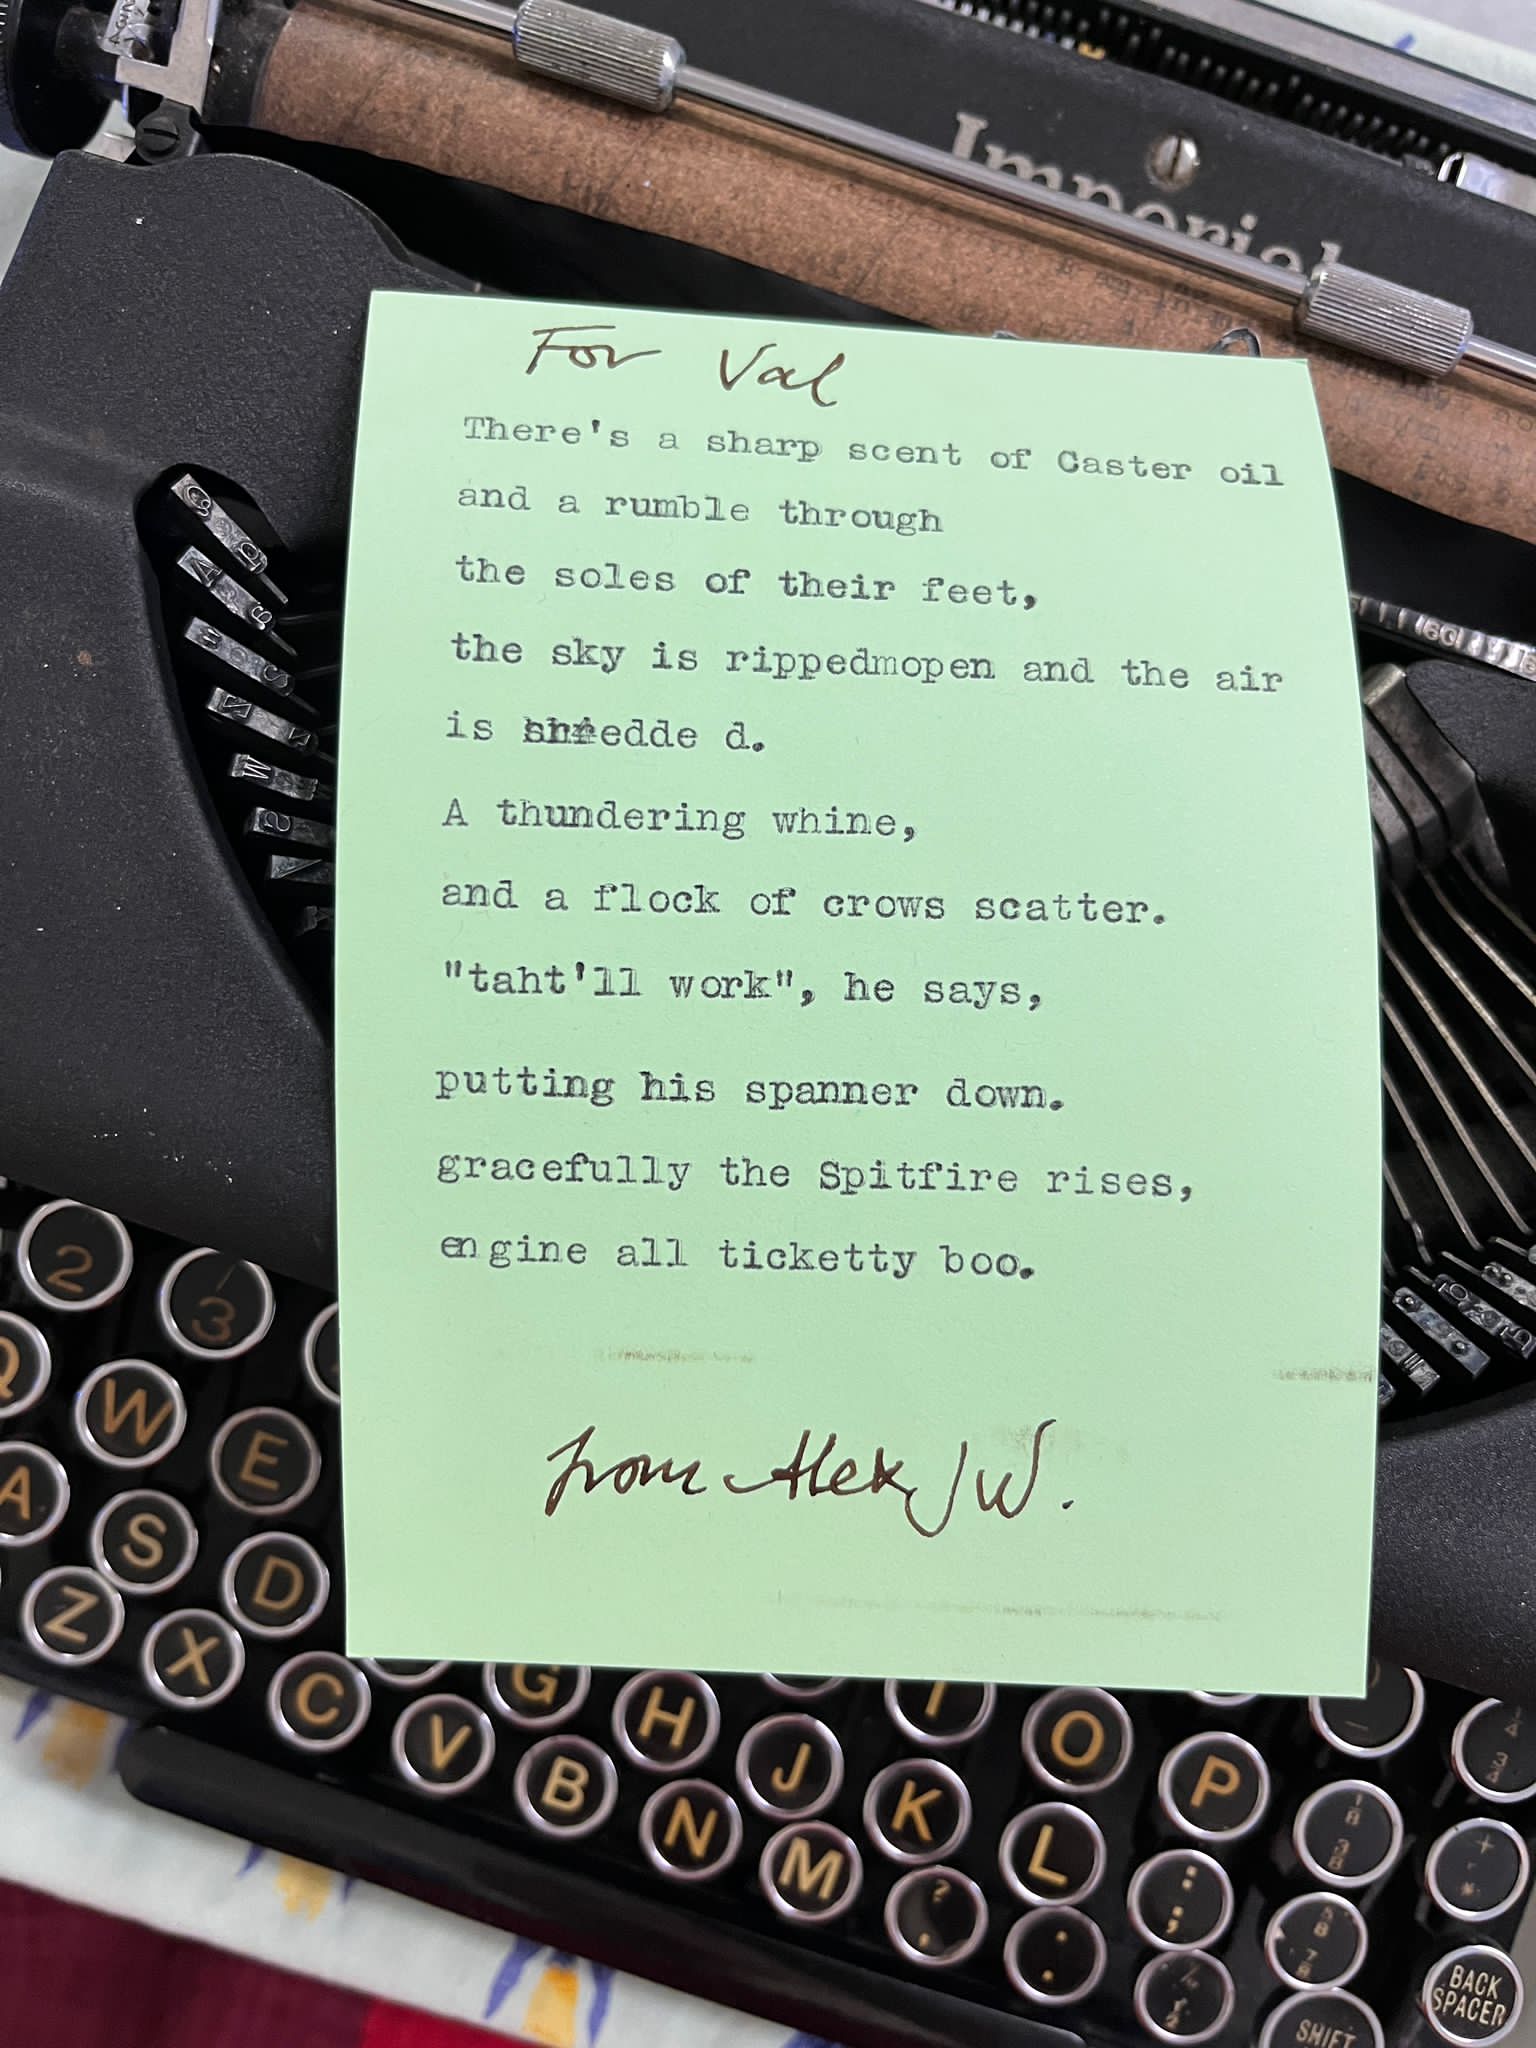 Imperial
For Val
There's a sharp scent of Caster oil
and a rumble through
the soles of their feet,
the sky is rippedmopen and the air
is shredde d.
A thundering whine,
and a flock of crows scatter.
"taht'll work", he says,
putting his spanner down.
gracefully the Spitfire rises,
engine all ticketty boo.
from Alex JW.
2 3
Q W E
A S D
Z X C V B N M
G H J K L
O P
BACK SPACER
SHIFT